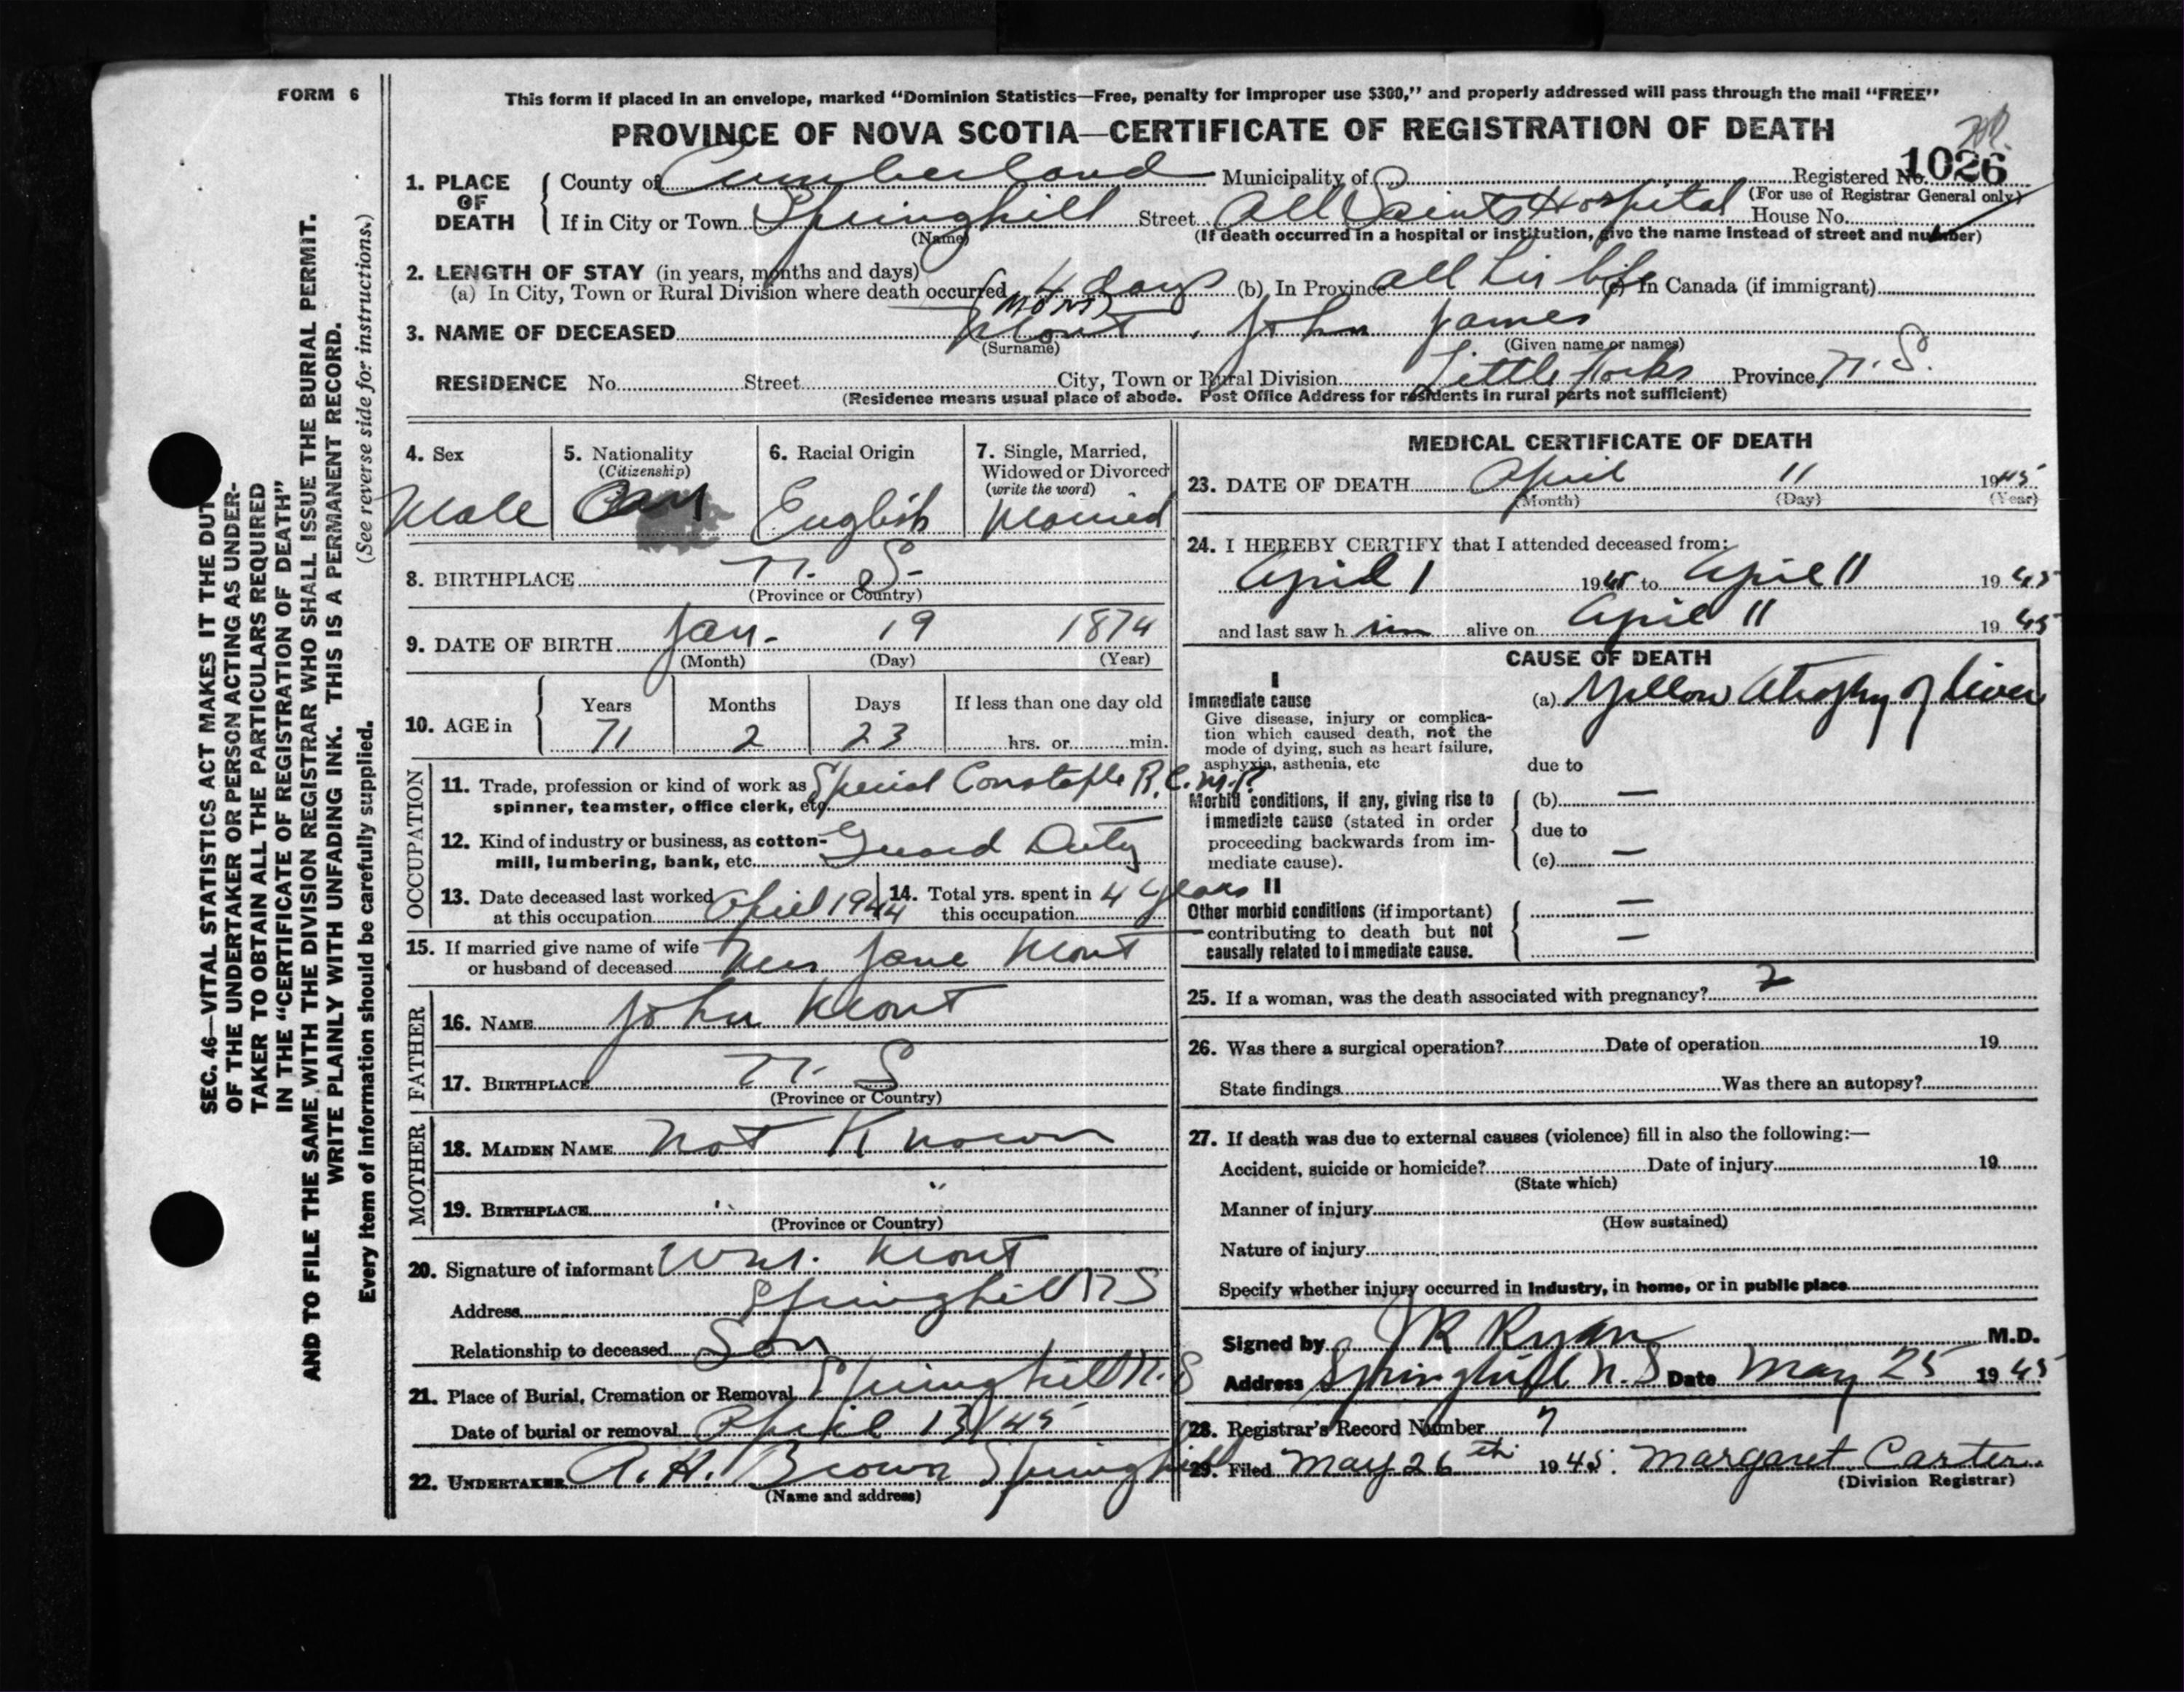 FORM 6
This form if placed in an envelope, marked "Dominion Statistics—Free, penalty for improper use $300," and properly addressed will pass through the mail "FREE"
PROVINCE OF NOVA SCOTIA—CERTIFICATE OF REGISTRATION OF DEATH
1. PLACE OF DEATH
County of Cumberland Municipality of Registered No. 1026
(For use of Registrar General only)
If in City or Town Springhill Street All Saints Hospital House No.
(Name) (If death occurred in a hospital or institution, give the name instead of street and number)
2. LENGTH OF STAY (in years, months and days)
(a) In City, Town or Rural Division where death occurred 4 days (b) In Province all his life (c) In Canada (if immigrant)
(MONT)
3. NAME OF DECEASED Mont, John James
(Surname) (Given name or names)
RESIDENCE No. Street City, Town or Rural Division Little Forks Province N. S.
(Residence means usual place of abode. Post Office Address for residents in rural parts not sufficient)
4. Sex Male
5. Nationality (Citizenship) Can
6. Racial Origin English
7. Single, Married, Widowed or Divorced (write the word) Married
8. BIRTHPLACE N. S.
(Province or Country)
9. DATE OF BIRTH Jan. 19 1874
(Month) (Day) (Year)
10. AGE in Years 71 Months 2 Days 23 If less than one day old hrs. or min.
OCCUPATION
11. Trade, profession or kind of work as spinner, teamster, office clerk, etc. Special Constable R.C.M.P.
12. Kind of industry or business, as cotton-mill, lumbering, bank, etc. Guard Duty
13. Date deceased last worked at this occupation April 1944
14. Total yrs. spent in this occupation 4 years
15. If married give name of wife or husband of deceased Mrs Jane Mont
FATHER
16. NAME John Mont
17. BIRTHPLACE N. S
(Province or Country)
MOTHER
18. MAIDEN NAME Not Known
19. BIRTHPLACE " "
(Province or Country)
20. Signature of informant Wm. Mont
Address Springhill N S
Relationship to deceased Son
21. Place of Burial, Cremation or Removal Springhill N. S
Date of burial or removal April 13/45
22. UNDERTAKER A. H. Brown Springhill
(Name and address)
MEDICAL CERTIFICATE OF DEATH
23. DATE OF DEATH April 11 1945
(Month) (Day) (Year)
24. I HEREBY CERTIFY that I attended deceased from:
April 1 1945 to April 11 1945
and last saw h im alive on April 11 1945
CAUSE OF DEATH
I
Immediate cause
Give disease, injury or complication which caused death, not the mode of dying, such as heart failure, asphyxia, asthenia, etc
(a) Yellow Atrophy of liver
due to
Morbid conditions, if any, giving rise to immediate cause (stated in order proceeding backwards from immediate cause).
(b) —
due to
(c) —
II
Other morbid conditions (if important) contributing to death but not causally related to immediate cause.
—
—
25. If a woman, was the death associated with pregnancy?
26. Was there a surgical operation? Date of operation 19
State findings Was there an autopsy?
27. If death was due to external causes (violence) fill in also the following:—
Accident, suicide or homicide? Date of injury 19
(State which)
Manner of injury
(How sustained)
Nature of injury
Specify whether injury occurred in industry, in home, or in public place
Signed by J R Ryan M.D.
Address Springhill N. S Date May 25 1945
28. Registrar's Record Number 7
29. Filed May 26th 1945. Margaret Carter
(Division Registrar)
SEC. 46—VITAL STATISTICS ACT MAKES IT THE DUTY
OF THE UNDERTAKER OR PERSON ACTING AS UNDER-
TAKER TO OBTAIN ALL THE PARTICULARS REQUIRED
IN THE "CERTIFICATE OF REGISTRATION OF DEATH"
AND TO FILE THE SAME WITH THE DIVISION REGISTRAR WHO SHALL ISSUE THE BURIAL PERMIT.
WRITE PLAINLY WITH UNFADING INK. THIS IS A PERMANENT RECORD.
Every item of information should be carefully supplied. (See reverse side for instructions.)